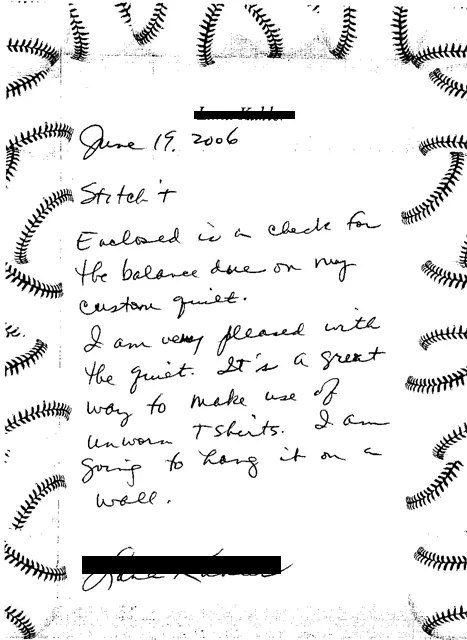 June 19, 2006
Stitch't
Enclosed is a check for
the balance due on my
custom quilt.
I am very pleased with
the quilt. It's a great
way to make use of
unworn T shirts. I am
going to hang it on a
wall.